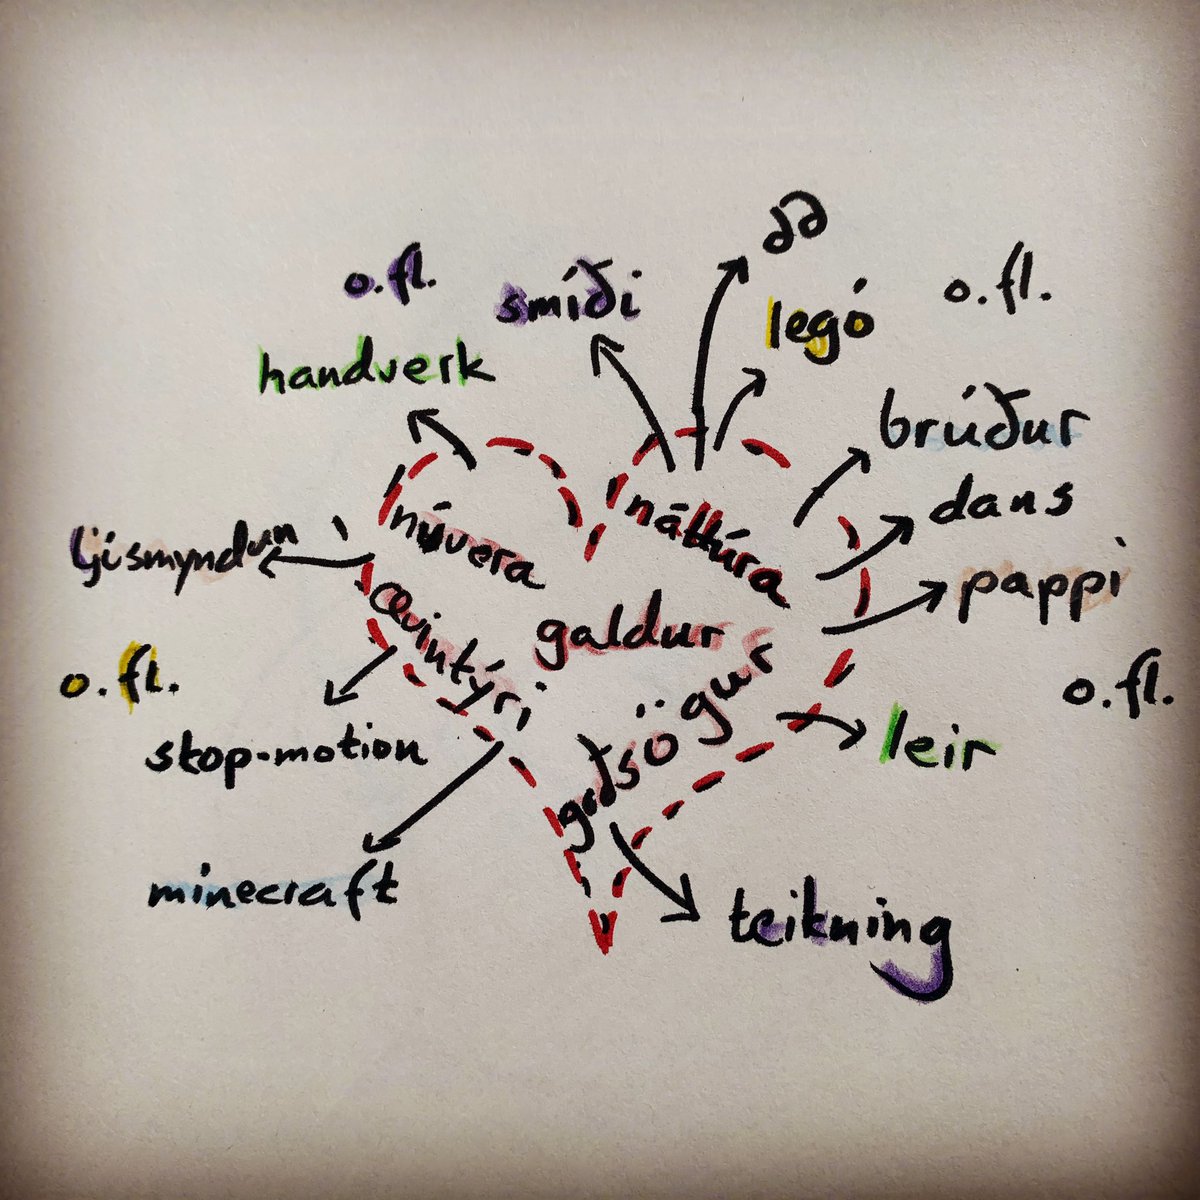 o.fl.
smíði
legó
o.fl.
handverk
brúður
dans
núvera
náttúra
ljósmyndun
pappi
ævintýri
galdur
o.fl.
o.fl.
goðsögur
stop-motion
leir
minecraft
teikning